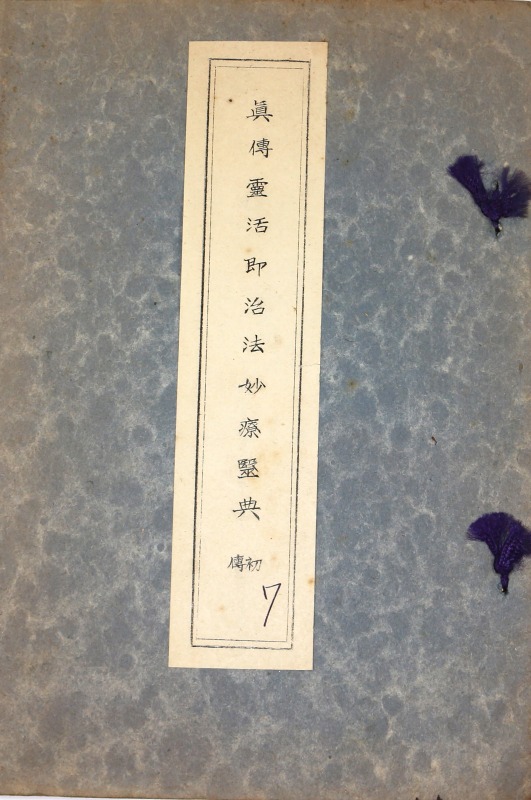 眞傳靈活即治法妙療毉典
初傳
7